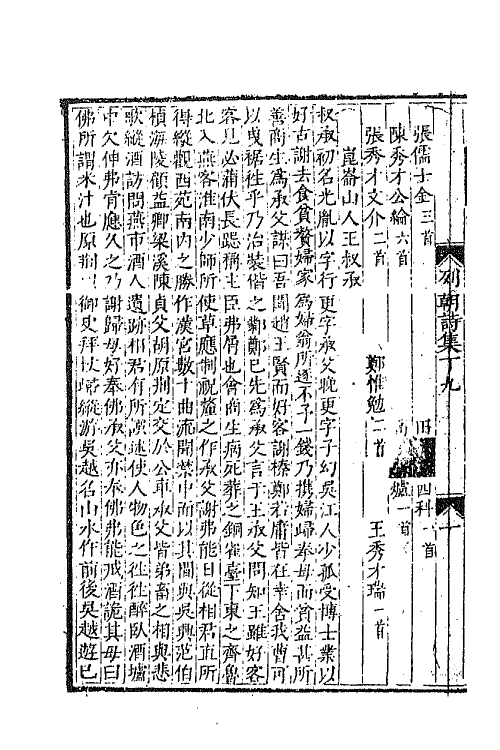 列朝詩集丁九
一
張儒士金三首 田 四科一首
陳秀才公綸六首 壚一首
張秀才文介二首 鄭惟勉二首 王秀才瑞一首
崑崙山人王叔承
叔承初名光胤以字行更字承父晚更字子幻吳江人少孤受博士業以
好古謝去食貧贅婦家為婦翁所逐不予一錢乃携婦歸奉母而貧益甚所
善商生為承父謀曰吾聞趙王賢而好客謝榛鄭若庸皆在幸舍我曹可
以曳裾往乎乃治裝偕之鄴鄭已先為承父言于王承父問知王雖好客
客見必蒲伏長跽稱主臣弗屑也會商生病死葬之銅雀臺下東之齊魯
北入燕客淮南少師所使草應制祝釐之作承父謝弗能日從相君直所
得縱觀西苑南內之勝作漢宮數十曲流聞禁中而以其間與吳興范伯
楨海陵顧益卿梁溪陳貞父胡原荆定交於公車承父皆弟畜之相與悲
歌縱酒訪問燕市酒人遺跡相君有所譔述使人物色之往往醉臥酒壚
中欠伸弗肯應久之乃謝歸母好奉佛承父亦奉佛弗能戒酒詭其母曰
佛所謂米汁也原荆以御史拜杖歸縱游吳越名山水作前後吳越遊已